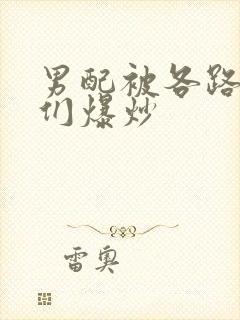 男配被各路
们爆炒
雷奥